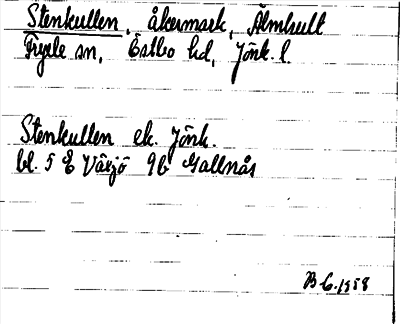 Stenkullen, åkermark, Älmhult
Fryele sn, Östbo hd, Jönk. l.
Stenkullen ek. Jönk.
bl. 5 E Växjö 9b Gallnås
B G. 1958